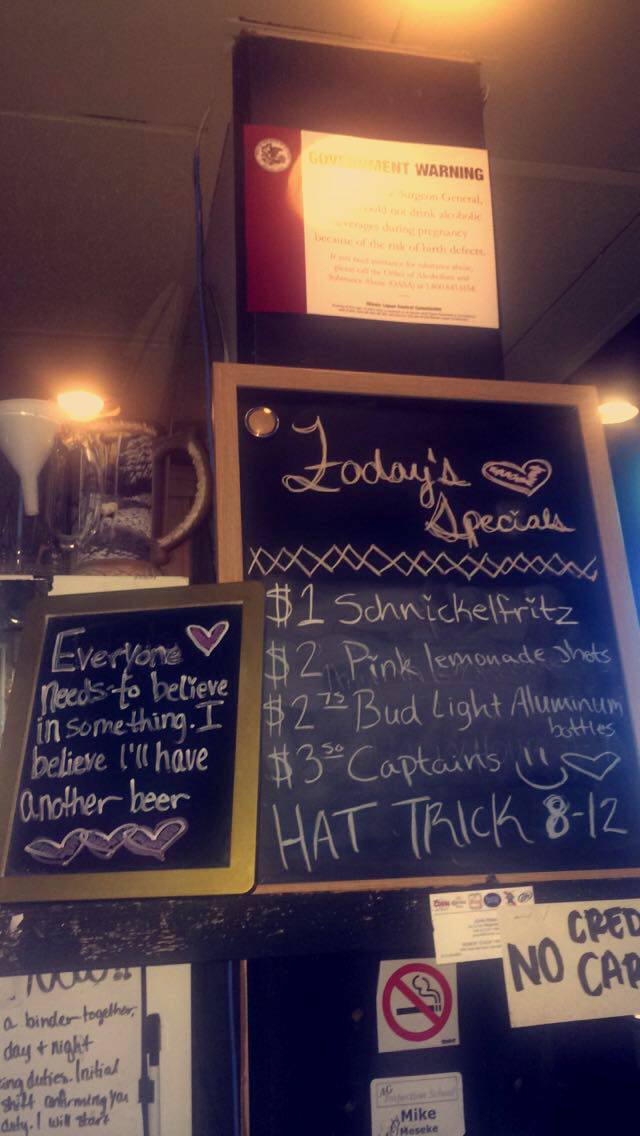 GOVERNMENT WARNING
Surgeon General,
not drink alcoholic
during pregnancy
because of the risk of birth defects.
If you need assistance for substance abuse,
please call the Office of Alcoholism and
Substance Abuse (OASA) at
Today's
Specials
$1 Schnickelfritz
$2 Pink lemonade shots
$2 75 Bud Light Aluminum
bottles
$3 50 Captains
HAT TRICK 8-12
Everyone
needs to believe
in something. I
believe I'll have
another beer
NO CRED
CAR
a binder together,
day + night
duties. Initial
shift confirming you
duty. I will start
Mike
Meseke